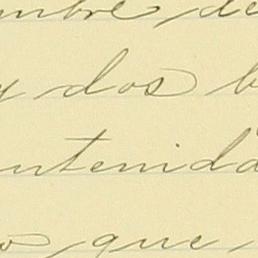 mbre de
y dos b
ntenida
o que